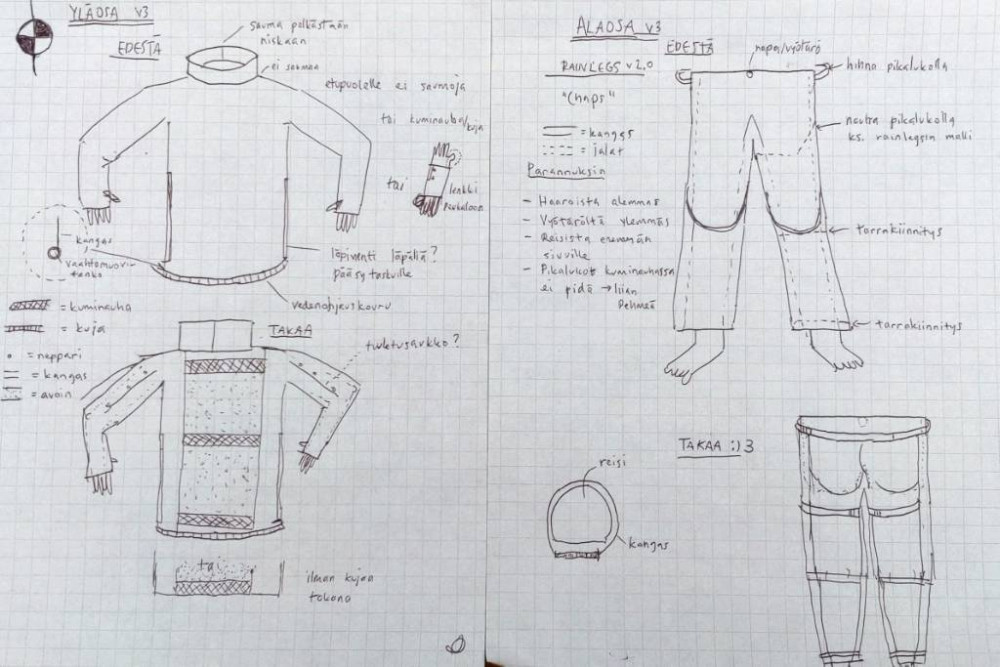 YLÄOSA v3
EDESTÄ
sauma pelkästään
niskaan
ei saumaa
etupuolelle ei saumoja
tai kuminauha/kuja
tai
lenkki
peukaloon
kangas
vaahtomuovi-
tanko
läpiventti läpällä?
pääsy taskuille
vedenohjauskouru
= kuminauha
= kuja
= neppari
= kangas
= avoin
TAKAA
tuuletusaukko?
tai
ilman kujaa
takana
ALAOSA v3
EDESTÄ
RAINLEGS v2.0
"Chaps"
= kangas
= jalat
Parannuksia
- Haaroista alemmas
- Vyötäröltä ylemmäs
- Reisistä enemmän
sivuille
- Pikalukot kuminauhassa
ei pidä → liian
pehmeä
napa/vyötärö
hihna pikalukolla
nauha pikalukolla
ks. rainlegsin malli
tarrakiinnitys
tarrakiinnitys
TAKAA :)3
reisi
kangas